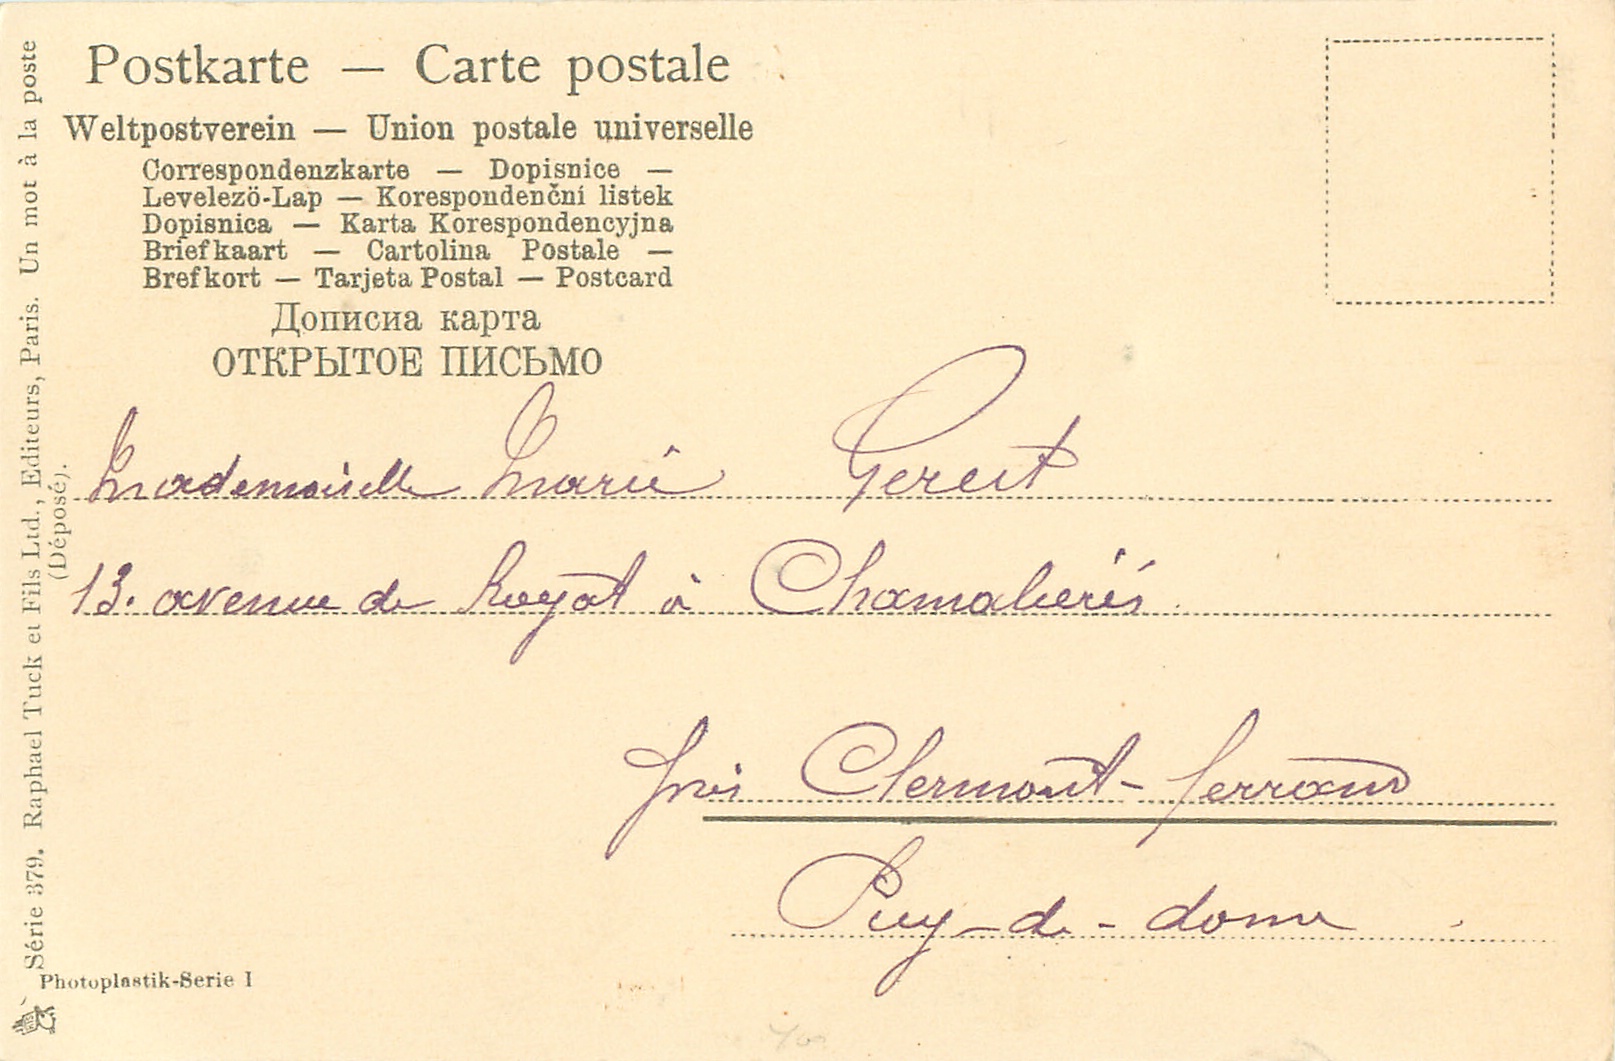 Postkarte — Carte postale
Weltpostverein — Union postale universelle
Correspondenzkarte — Dopisnice —
Levelezö-Lap — Korespondenční listek
Dopisnica — Karta Korespondencyjna
Briefkaart — Cartolina Postale —
Brefkort — Tarjeta Postal — Postcard
Дописна карта
ОТКРЫТОЕ ПИСЬМО
Mademoiselle Marie
13. avenue de Royat à Chamalières
près Clermont-Ferrand
Puy-de-dome
Série 379. Raphael Tuck et Fils Ltd., Editeurs, Paris. Un mot à la poste
(Déposé).
Photoplastik-Serie I